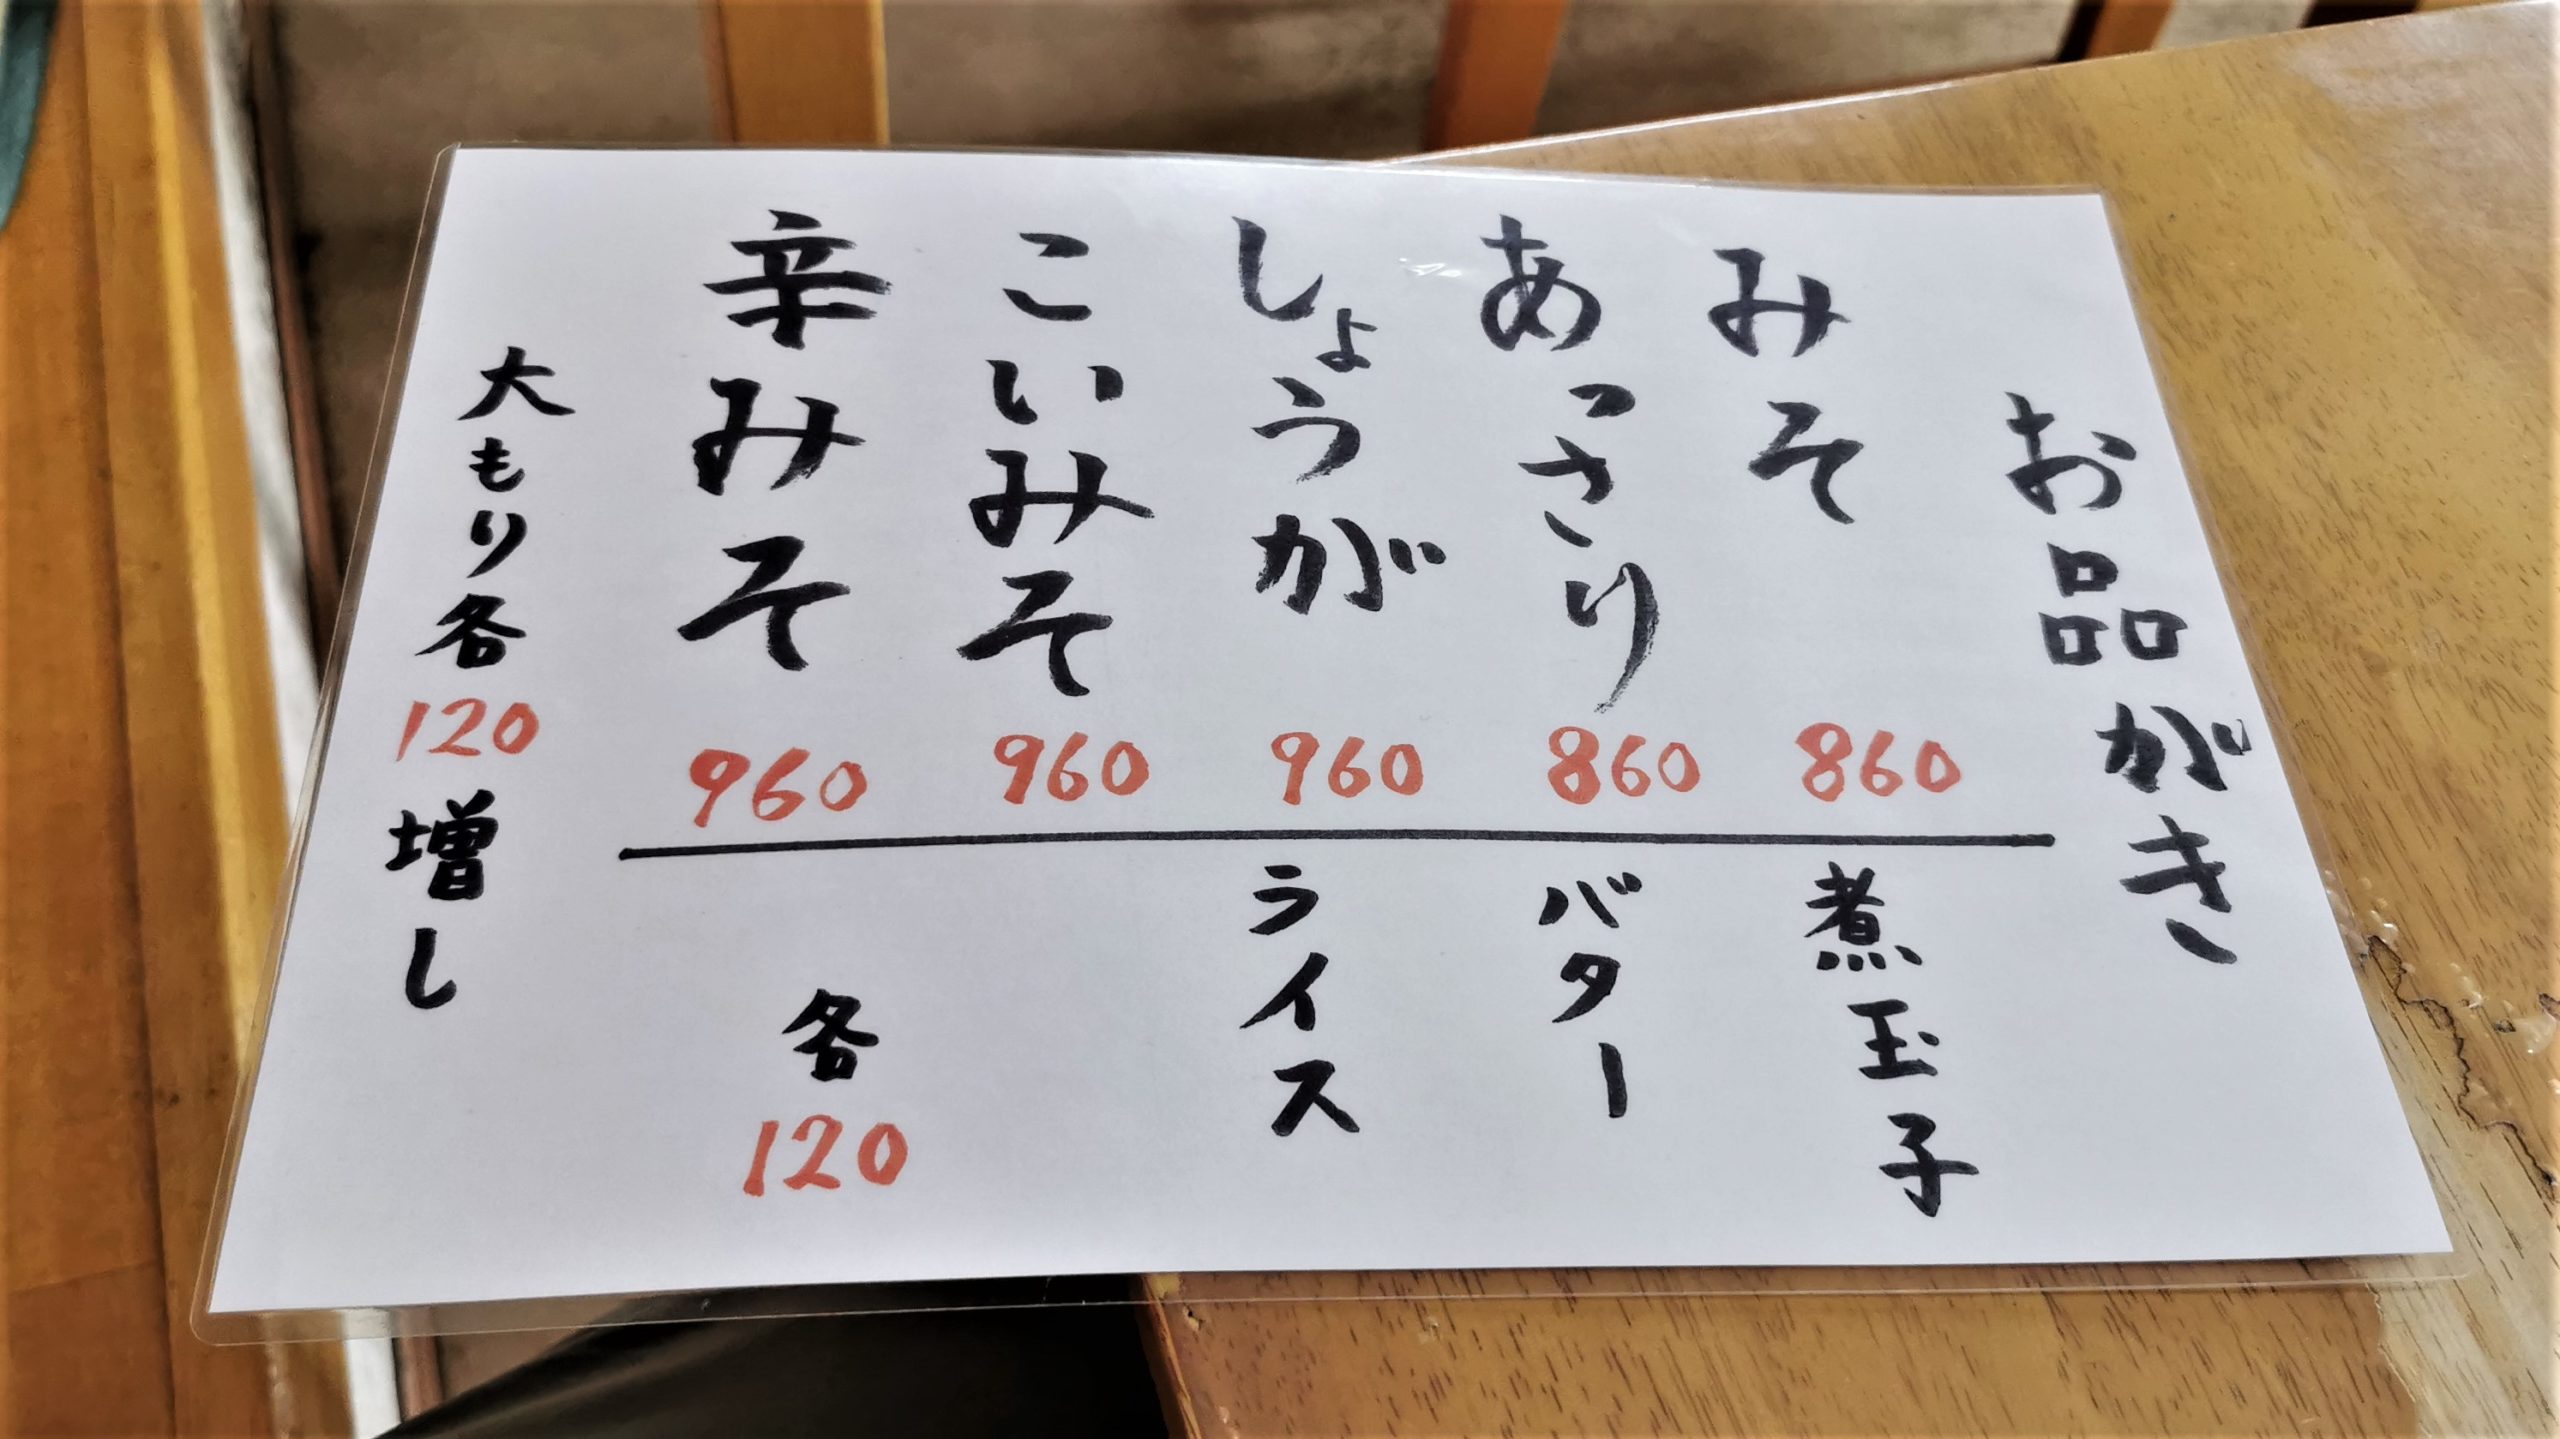 お品がき
みそ 860
あっさり 860
しょうが 960
こいみそ 960
辛みそ 960
煮玉子
バター
ライス
各120
大もり各120増し